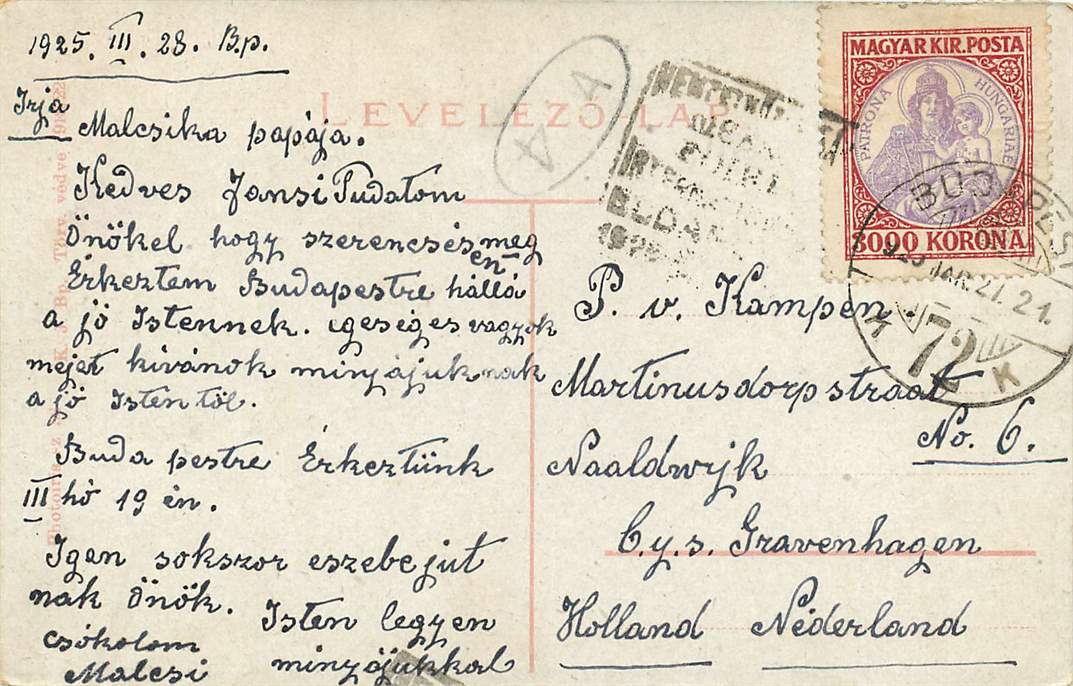 1925. III. 28. B.p.
Irja
Malcsika papája.
Kedves JansiTudatom
Önökel hogy szerencsésmeg
Érkeztem Budapestre hállá
en
a jó Istennek. egeséges vagyok
mejet kivánok minyájuknak
a jó Istentöl.
Buda pestre Érkeztünk
III hó 19 én.
Igen sokszor eszebejut
nak Önök. Isten legyen
csókolom minyájukkal
Malcsi
LEVELEZŐ-LAP
A
A
BUDA
192
MAGYAR KIR. POSTA
PATRONA HUNGARIAE
3000 KORONA
BUDAPEST
925 MÁR.27. 21.
72
K
P. v. Kampen
Martinusdorpstraat
No. 6.
Naaldwijk
b.y.s. Gravenhagen
Holland Néderland
Törv. védve
Bp.